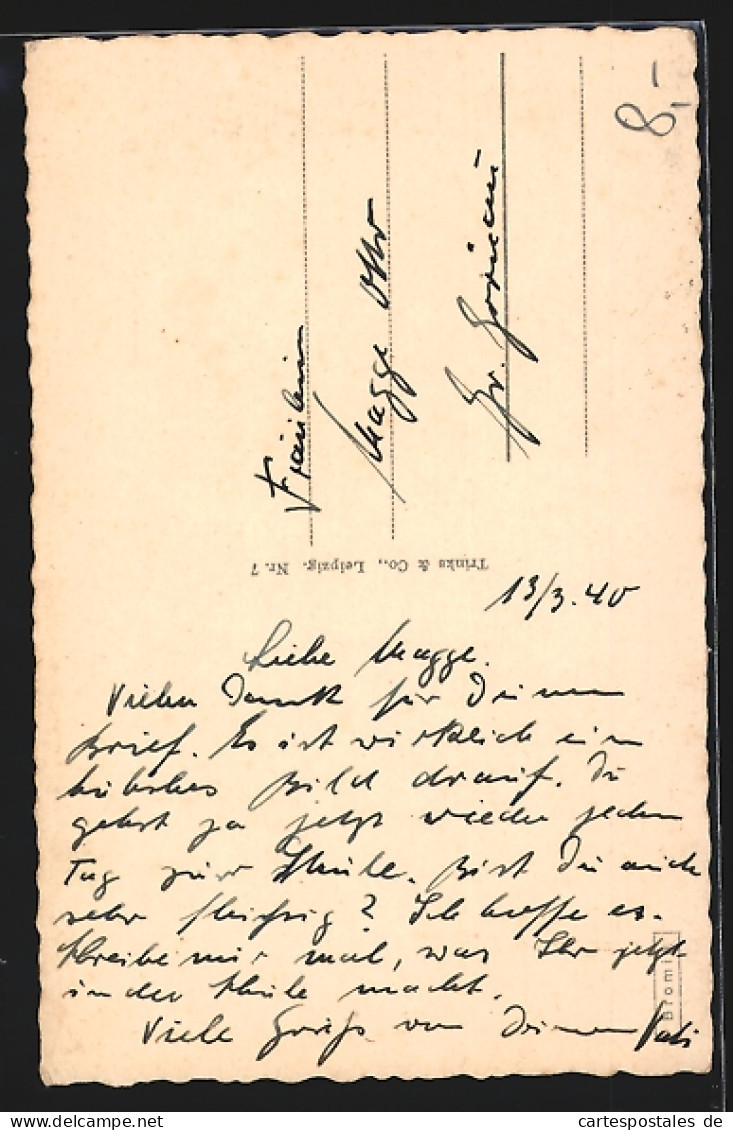 8,-
Fräulein
Magge Otto
Gr.
Trinks & Co., Leipzig. Nr. 7
13/3.40
Liebe Magge.
Vielen Dank für Deinen
Brief. Es ist wirklich ein
hübsches Bild drauf. Du
gehst ja jetzt wieder jeden
Tag zur Schule. Bist Du auch
sehr fleissig? Ich hoffe es.
Schreibe mir mal, was Ihr jetzt
in der Schule macht.
Viele Grüsse von Deinem Vati
Bromi
cartespostales.de